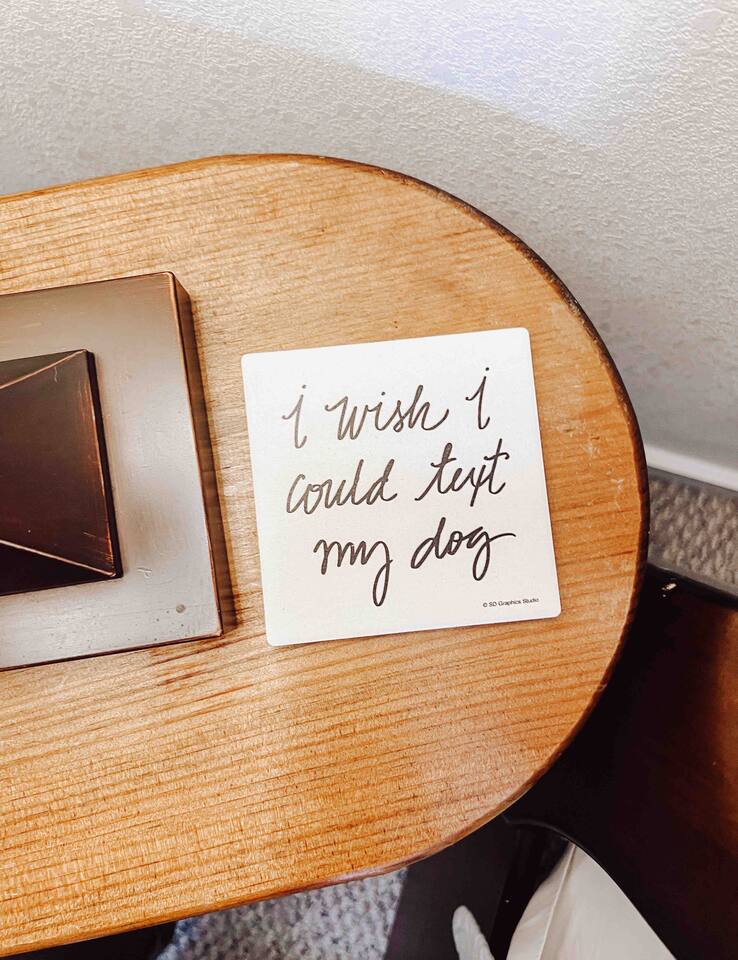 i wish i
could text
my dog
© SD Graphics Studio